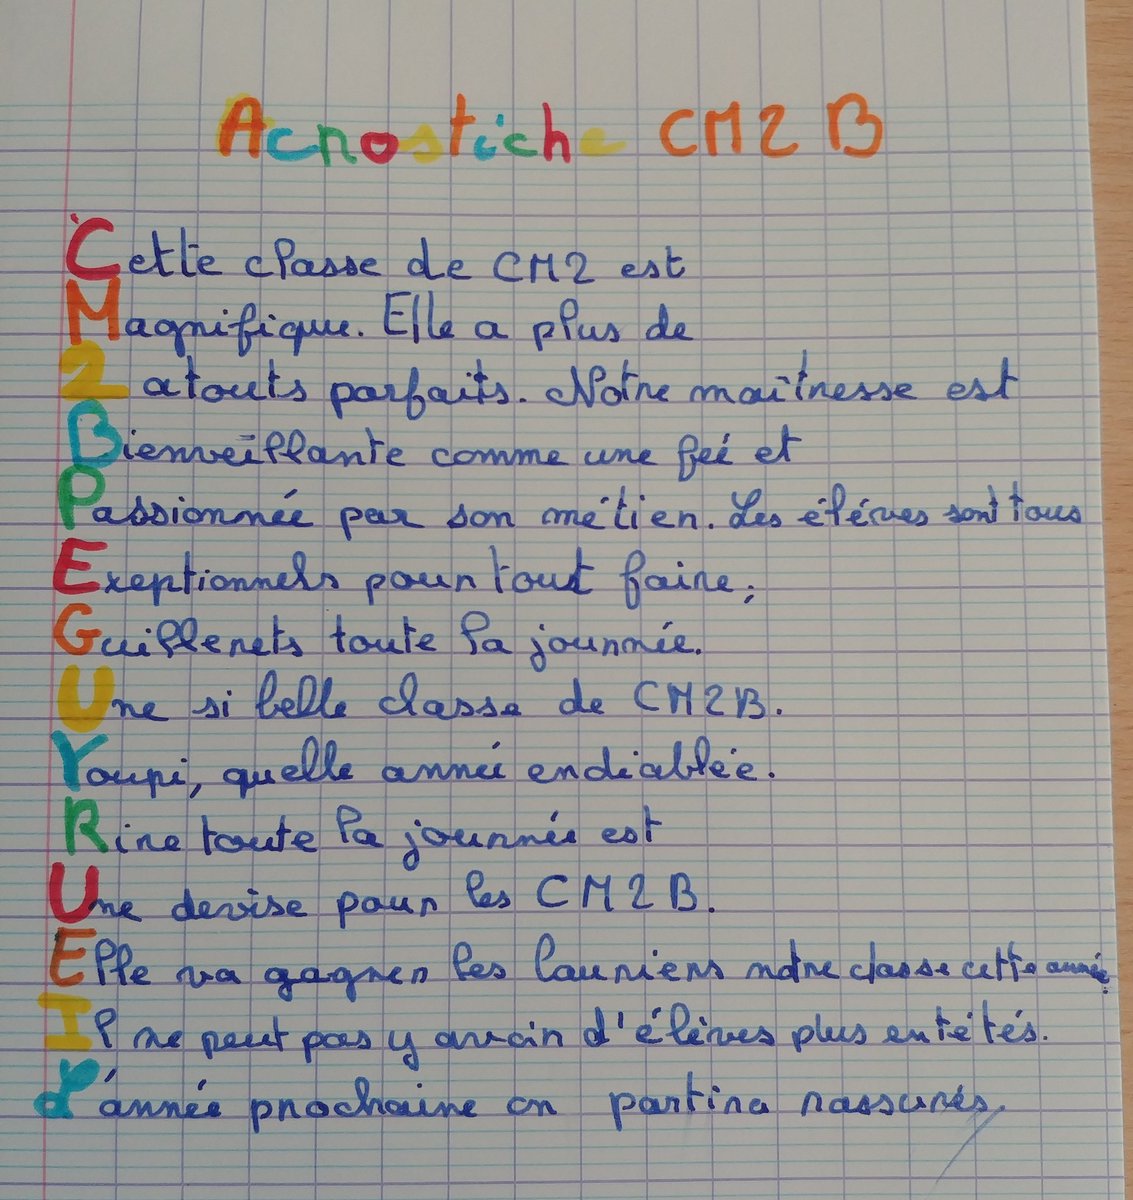 Acrostiche CM2 B
Cette classe de CM2 est
Magnifique. Elle a plus de
2 atouts parfaits. Notre maîtresse est
Bienveillante comme une feé et
Passionnée par son métier. Les éléves sont tous
Exeptionnels pour tout faire;
Guillerets toute la journée.
Une si belle classe de CM2B.
Youpi, quelle année endiablée.
Rire toute la journée est
Une devise pour les CM2B.
Elle va gagner les lauriers notre classe cette année.
Il ne peut pas y avoir d'élèves plus entétés.
L'année prochaine on partira rassurés.